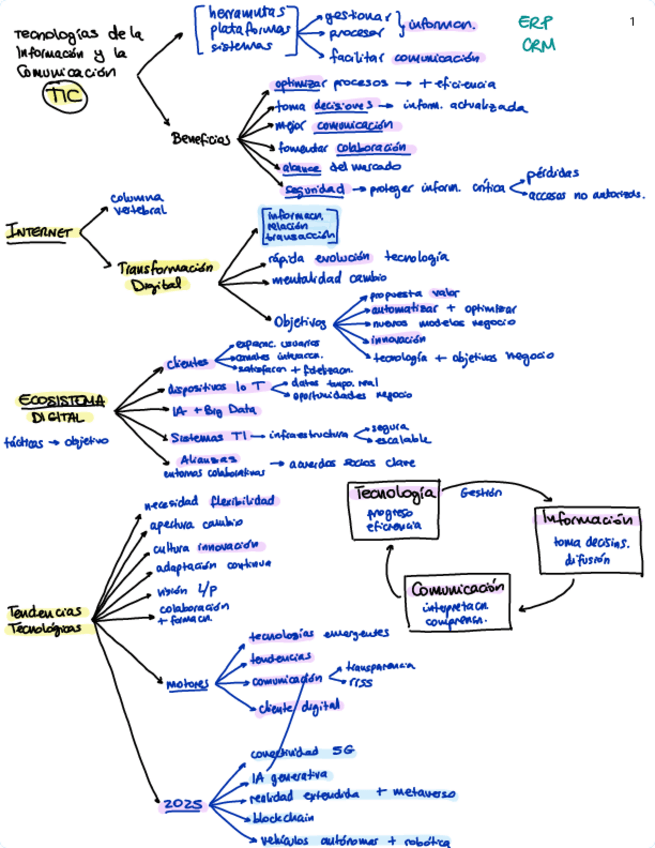 Tecnologías de la
Información y la
Comunicación
TIC
herramntas
plataformas
sistemas
gestionar
procesar
informacn.
facilitar comunicación
ERP
CRM
1
Beneficios
optimizar procesos → + eficiencia
toma decisiones → inform. actualizada
mejor comunicación
fomentar colaboración
alcance del mercado
seguridad → proteger inform. crítica
pérdidas
accesos no autorizds.
INTERNET
columna
vertebral
Transformación
Digital
informacn.
relación
transacción
rápida evolución tecnología
mentalidad cambio
Objetivos
propuesta valor
automatizar + optimizar
nuevos modelos negocio
innovación
tecnología + objetivos negocio
ECOSISTEMA
DIGITAL
tácticas → objetivo
clientes
experiec. usuarios
canales interaccn.
satisfaccn + fidelizacn.
dispositivos IoT
datos tmpo. real
oportunidades negocio
IA + Big Data
Sistemas TI → infraestructura
segura
escalable
Alianzas
entornos colaborativos
→ acuerdos socios clave
Tecnología
progreso
eficiencia
Gestión
Información
toma decisins.
difusión
Comunicación
interpretacn.
comprensn.
Tendencias
Tecnológicas
necesidad flexibilidad
apertura cambio
cultura innovación
adaptación continua
visión L/P
colaboración
+ formacn.
motores
tecnologías emergentes
tendencias
comunicación
transparencia
rrss
cliente digital
2025
conectividad 5G
IA generativa
realidad extendida + metaverso
blockchain
vehículos autónomos + robótica